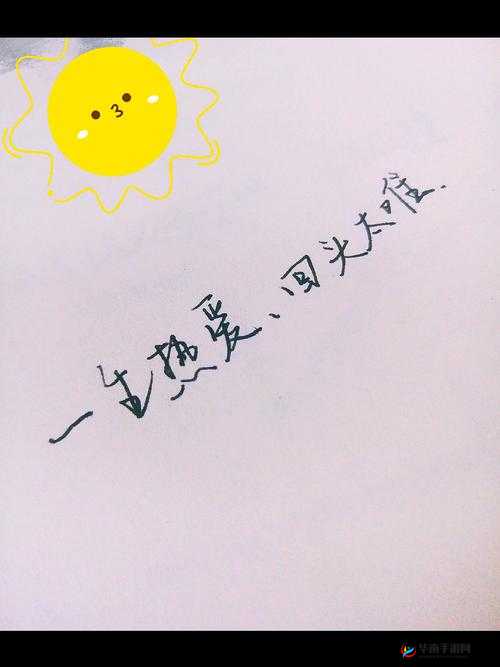 一生热爱、回头太难.
华南手游网